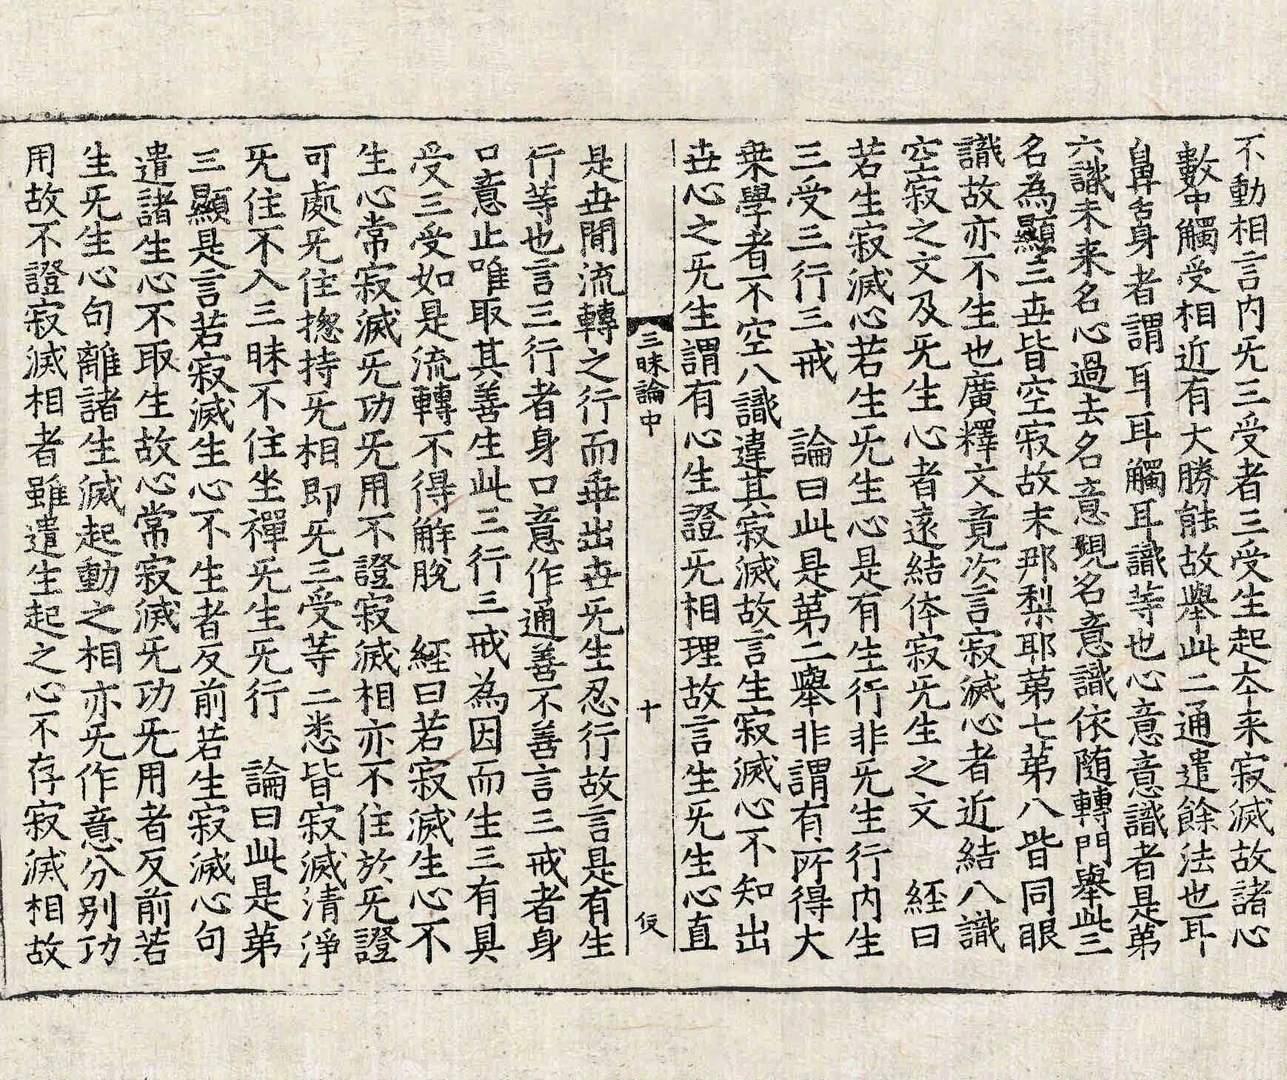 不動相言內旡三受者三受生起夲来寂滅故諸心
數中觸受相近有大勝能故舉此二通遣餘法也耳
鼻舌身者謂耳耳觸耳識等也心意意識者是第
六識未来名心過去名意現名意識依随轉門舉此三
名為顯三世皆空寂故末那梨耶第七第八皆同眼
識故亦不生也廣釋文竟次言寂滅心者近結八識
空寂之文及旡生心者逺結体寂旡生之文　經曰
若生寂滅心若生旡生心是有生行非旡生行內生
三受三行三戒　論曰此是第二舉非謂有所得大
乗學者不空八識違其寂滅故言生寂滅心不知出
世心之旡生謂有心生證旡相理故言生旡生心直
三昧論中　十　仮
是世閒流轉之行而乖出世旡生忍行故言是有生
行等也言三行者身口意作通善不善言三戒者身
口意止唯取其善生此三行三戒為因而生三有具
受三受如是流轉不得解脫　經曰若寂滅生心不
生心常寂滅旡功旡用不證寂滅相亦不住於旡證
可處旡住揔持旡相即旡三受等三悉皆寂滅清淨
旡住不入三昧不住坐禪旡生旡行　論曰此是第
三顯是言若寂滅生心不生者反前若生寂滅心句
遣諸生心不取生故心常寂滅旡功旡用者反前若
生旡生心句離諸生滅起動之相亦旡作意分别功
用故不證寂滅相者雖遣生起之心不存寂滅相故